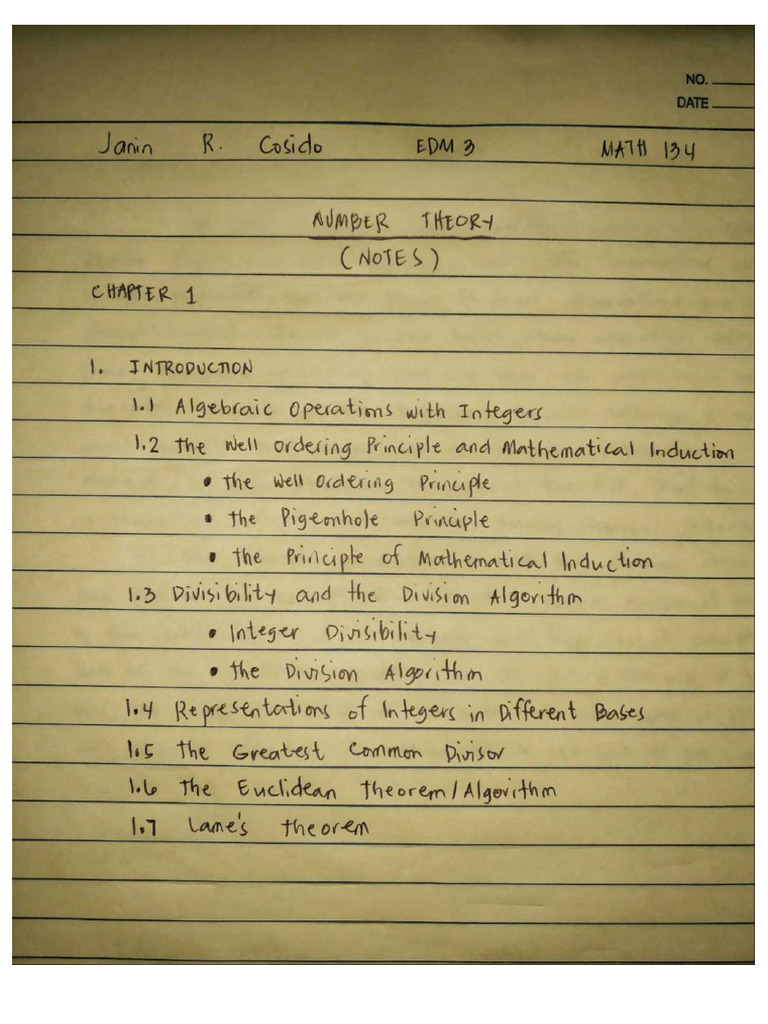 NO.
DATE
Janin R. Cosido EDM 3 MATH 134
NUMBER THEORY
(NOTES)
CHAPTER 1
1. INTRODUCTION
1.1 Algebraic Operations with Integers
1.2 the Well Ordering Principle and Mathematical Induction
• the Well Ordering Principle
• the Pigeonhole Principle
• the Principle of Mathematical Induction
1.3 Divisibility and the Division Algorithm
• Integer Divisibility
• the Division Algorithm
1.4 Representations of Integers in Different Bases
1.5 the Greatest Common Divisor
1.6 the Euclidean theorem/Algorithm
1.7 Lame's theorem